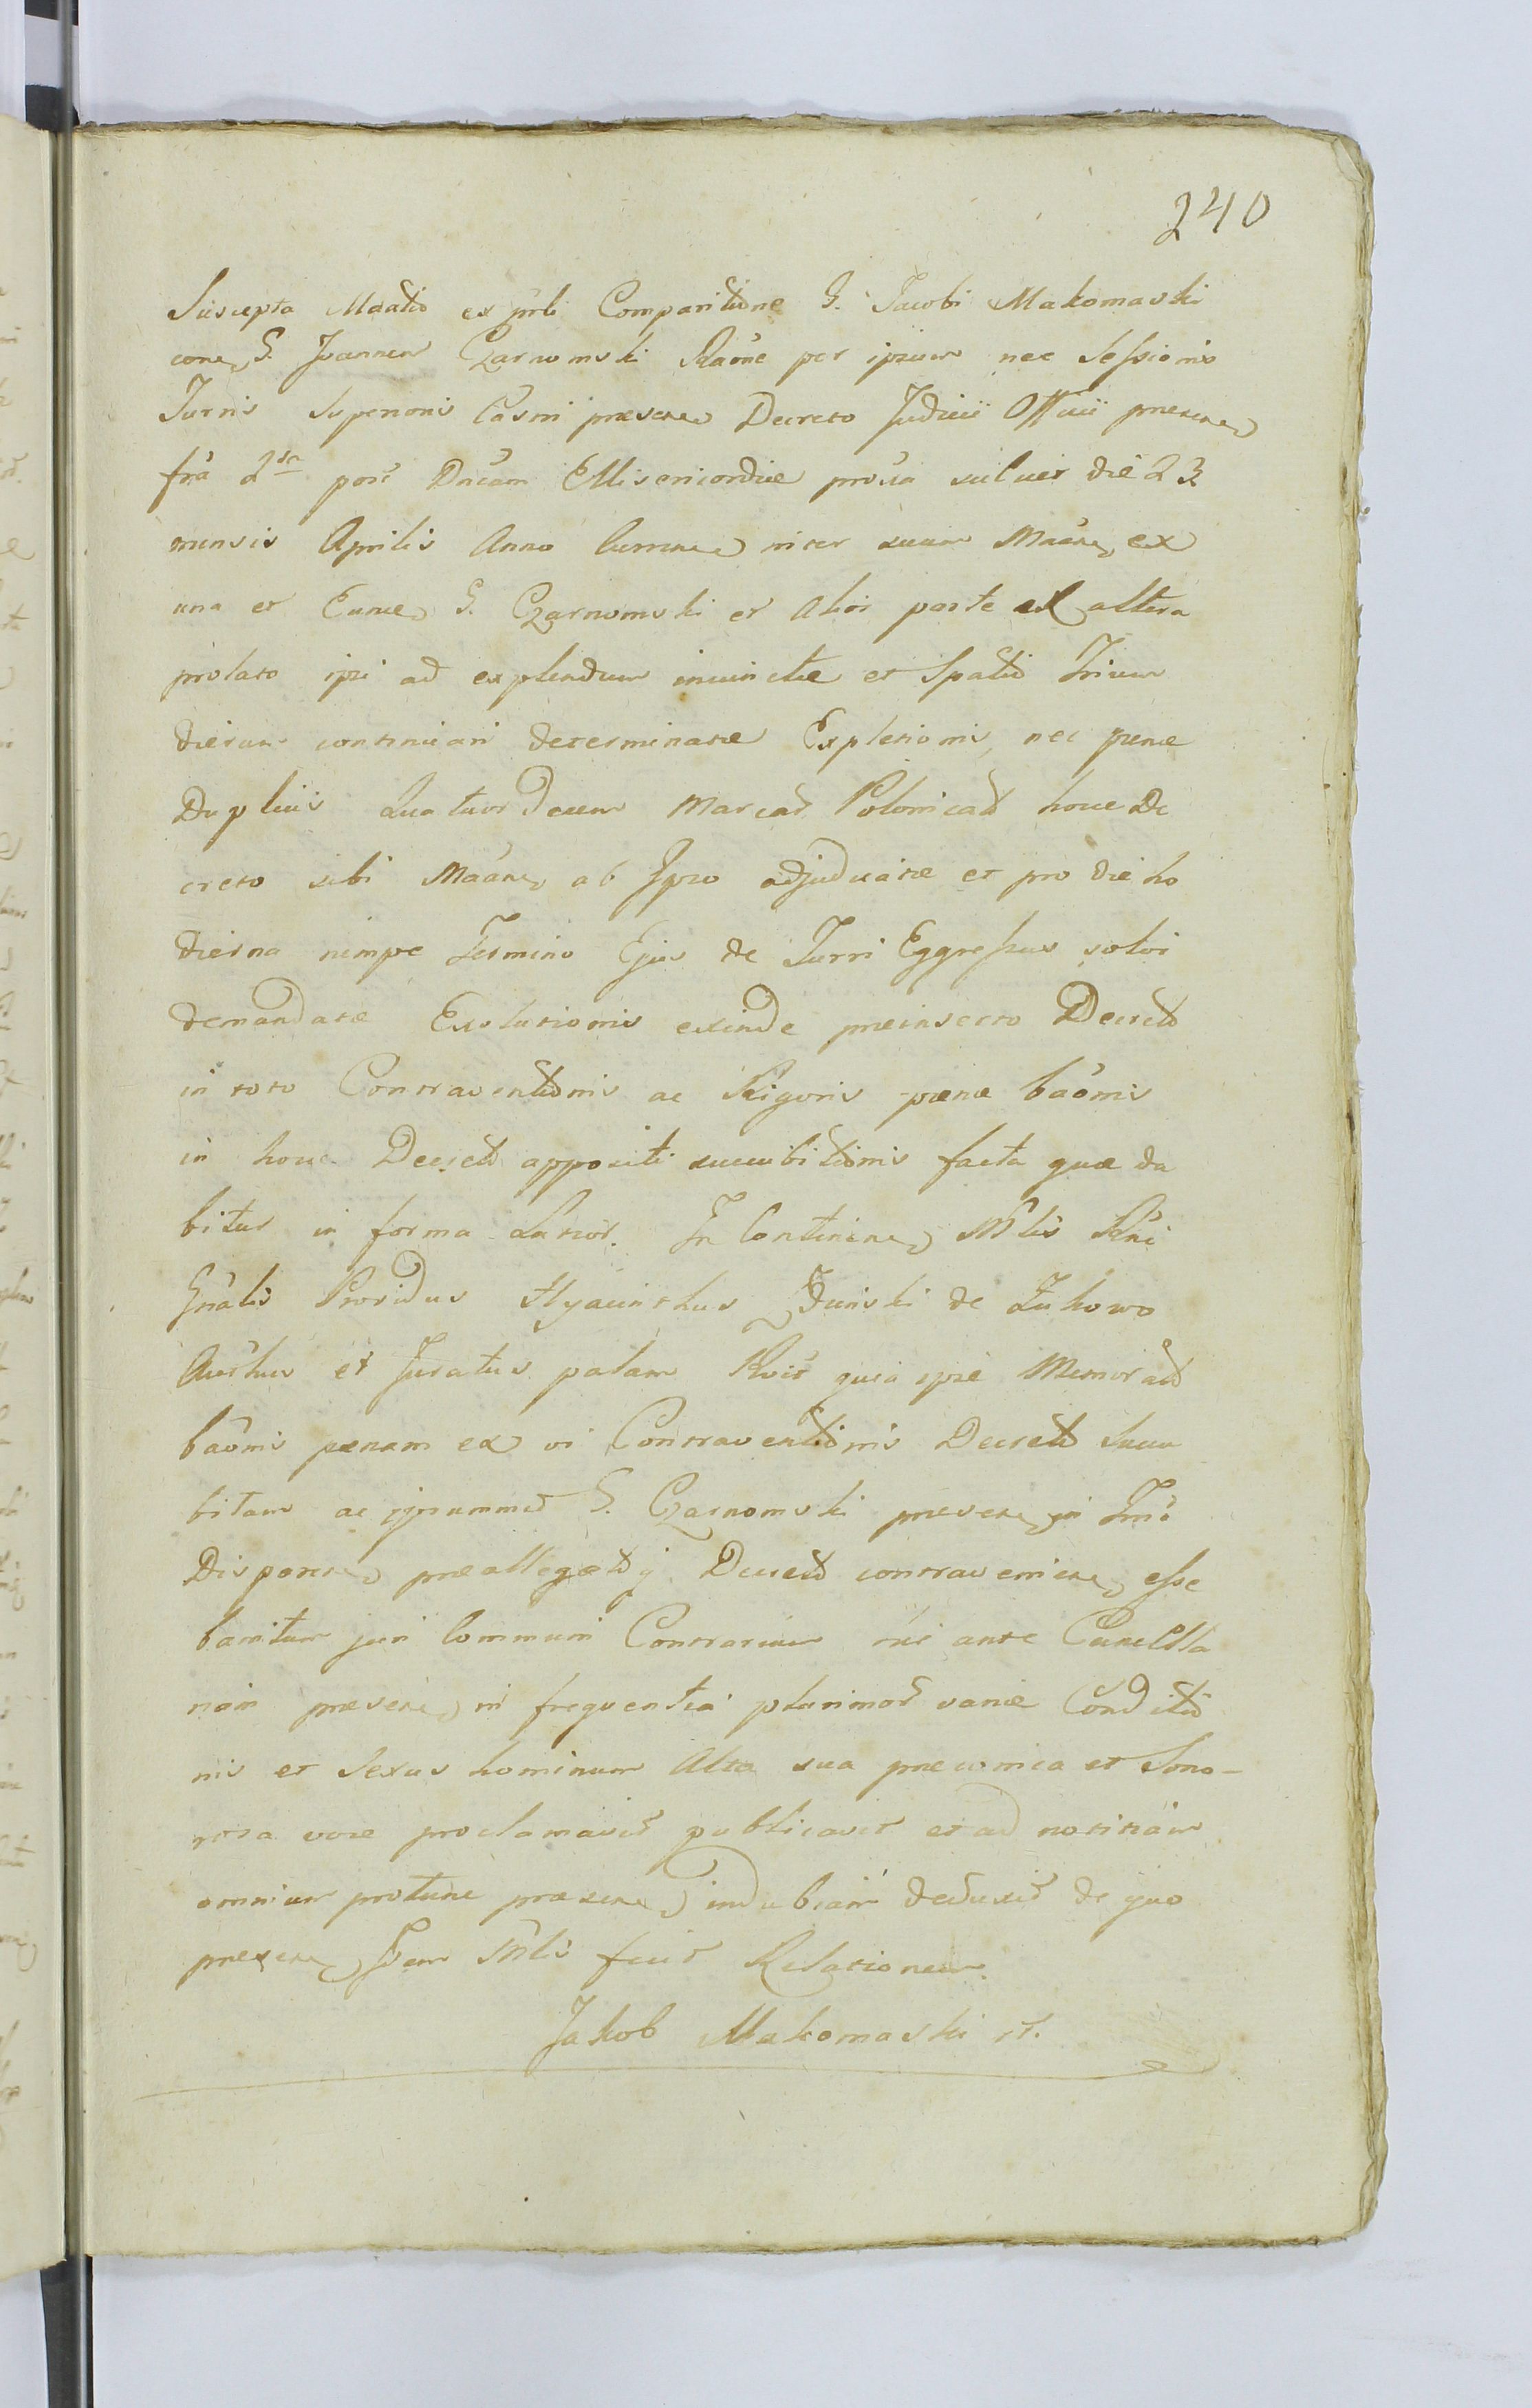 240
Suscepta Maatio ex prli Comparitione G. Jacobi Makomaski
cone G. Joannem Czarnomski Raone per ipsum nec Sessionis
Turris Superioris Casrri praesene Decreto Judicii Officii praesene
fra 2da post Dncam Misericordiae proxia scilicet die 23
mensis Aprilis Anno currene inter suum Maane ex
una et Eunde G. Czarnomski et Alios parte ex altera
prolato ipsi ad explendum iniunctae et Spatio Trium
dierum continuari determinatae Expletionis, nec penae
Dupliciis Quatuordecim Marcar Polonicar hocce De
creto sibi Maane ab Ipso adjudicatae et pro die ho
dierna nempe Termino Ejus de Turri Eggressus solvi
demandatae Exolutionis exinde praeinserto Decreto
in toto Contraventionis ac Rigoris paenae baonis
in hocce Decreto appositi succubitionis facta quae da
bitur in forma Latior. In Continene Mlis Rni
Gnalis Providus Hyacinthus Zduński de Lukowo
Autthus et Juratus palam Rvit quia ipse Memorato
baonis paenam ex vi Contraventionis Decreto Succu
bitam ac ipsummet G. Czarnomski praesene in Trno
Disporene praeallegatoq Decreto contraveniene esse
banitum juri Communi Contrarium hic ante Cancella
riam praesene in frequentia plurimor variae Conditio
nis et Sexus hominum Alta sua praeconica et Sono-
rosa voce proclamavit publicavit et ad notitiam
omnium protunc praesene indubiam deduxit de quo
praesene Idem Mlis fecit Relationem.
Jakob Makomaski